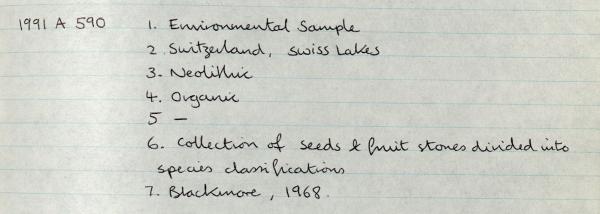 1991 A 590 1. Environmental Sample
2. Switzerland, Swiss Lakes
3. Neolithic
4. Organic
5 —
6. Collection of seeds & fruit stones divided into
species classifications
7. Blackmore, 1968.